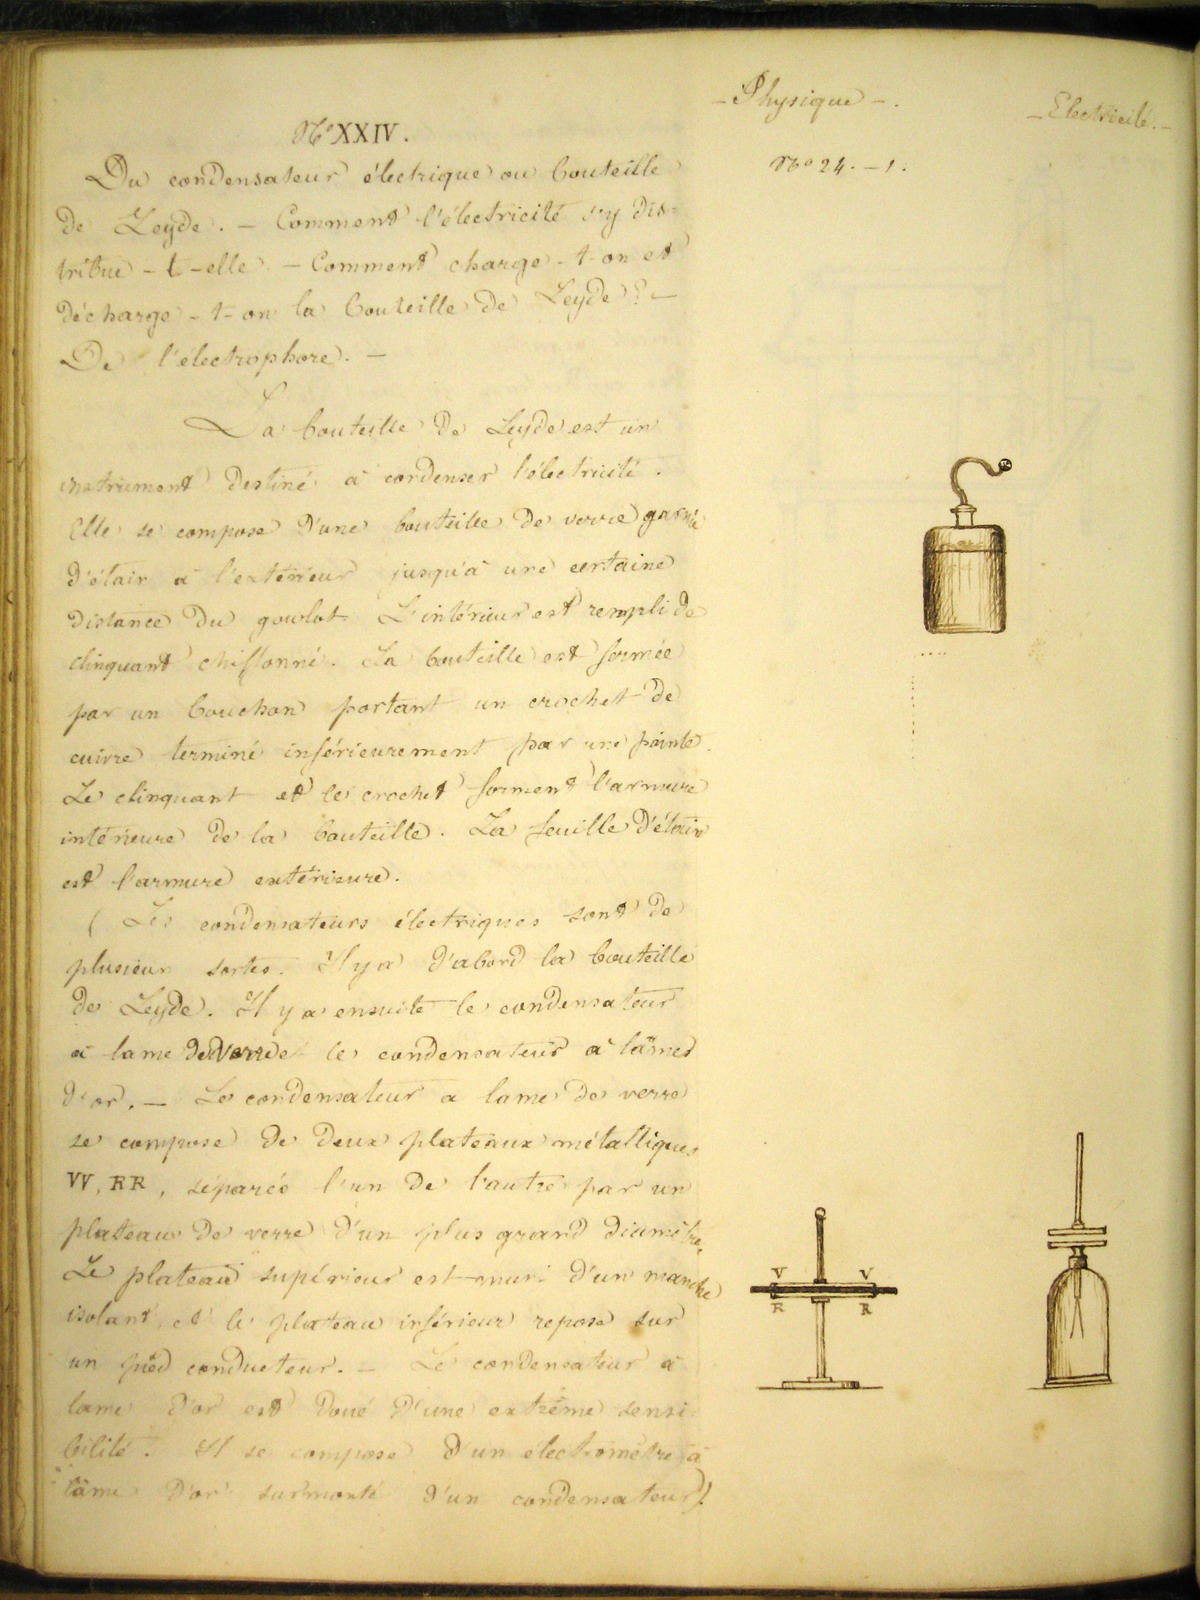 - Physique - .
- Electricité. -
No 24. - 1.
No XXIV.
Du condensateur électrique ou bouteille
de Leyde. - Comment l'électricité s'y dis-
tribue - t - elle. - Comment charge - t - on et
décharge - t - on la bouteille de Leyde ? -
De l'électrophore. -
La bouteille de Leyde est un
instrument destiné à condenser l'électricité.
Elle se compose d'une bouteille de verre garnie
d'étain à l'extérieur jusqu'à une certaine
distance du goulot. L'intérieur est rempli de
clinquant chiffonné. La bouteille est fermée
par un bouchon portant un crochet de
cuivre terminé inférieurement par une pointe.
Le clinquant et le crochet forment l'armure
intérieure de la bouteille. La feuille d'étain
est l'armure extérieure.
( Les condensateurs électriques sont de
plusieur sortes. Il y a d'abord la bouteille
de Leyde. Il y a ensuite le condensateur
à lame de verre et le condensateur à lames
d'or. - Le condensateur a lame de verre
se compose de deux plateaux métalliques
VV, RR, séparés l'un de l'autre par un
plateau de verre d'un plus grand diamètre.
Le plateau supérieur est muni d'un manche
isolant, et le plateau inférieur repose sur
un pied conducteur. - Le condensateur à
lame d'or est doué d'une extrême sensi-
bilité. Il se compose d'un electromètre à
lame d'or surmonté d'un condensateur).
V V
R R